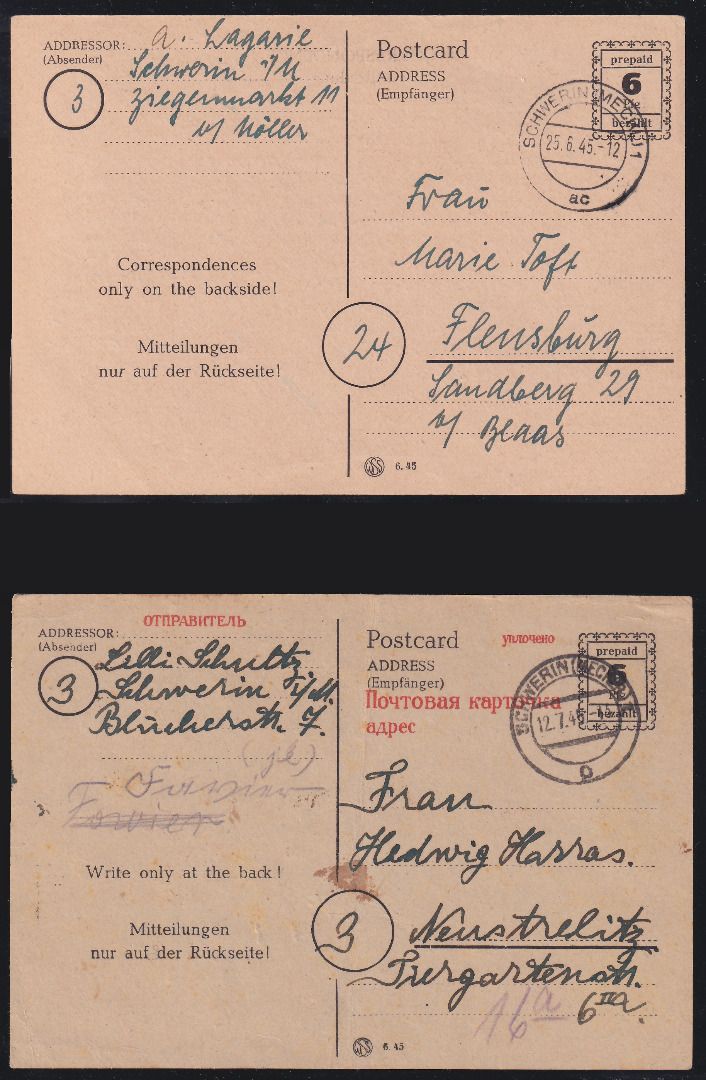 ADDRESSOR: A. Lagarie
(Absender)
Schwerin i/M
3
Ziegenmarkt 11
b/ Möller
Correspondences
only on the backside!
Mitteilungen
nur auf der Rückseite!
Postcard
ADDRESS
(Empfänger)
prepaid
6
Pfg
bezahlt
SCHWERIN (MECKL) 1
25.6.45.-12
ac
Frau
Marie Toft
24
Flensburg
Sandberg 29
b/ Blaas
6.45
ОТПРАВИТЕЛЬ
ADDRESSOR:
(Absender)
Lilli Schultz
3
Schwerin i/M.
Blücherstr. 7.
Favier
Write only at the back!
Mitteilungen
nur auf der Rückseite!
Postcard
уплочено
ADDRESS
(Empfänger)
Почтовая карточка
адрес
prepaid
6
bezahlt
SCHWERIN (MECKL)
12.7.45
Frau
Hedwig Harras.
3
Neustrelitz
Tiergartenstr.
16a
6 IIa.
6.45